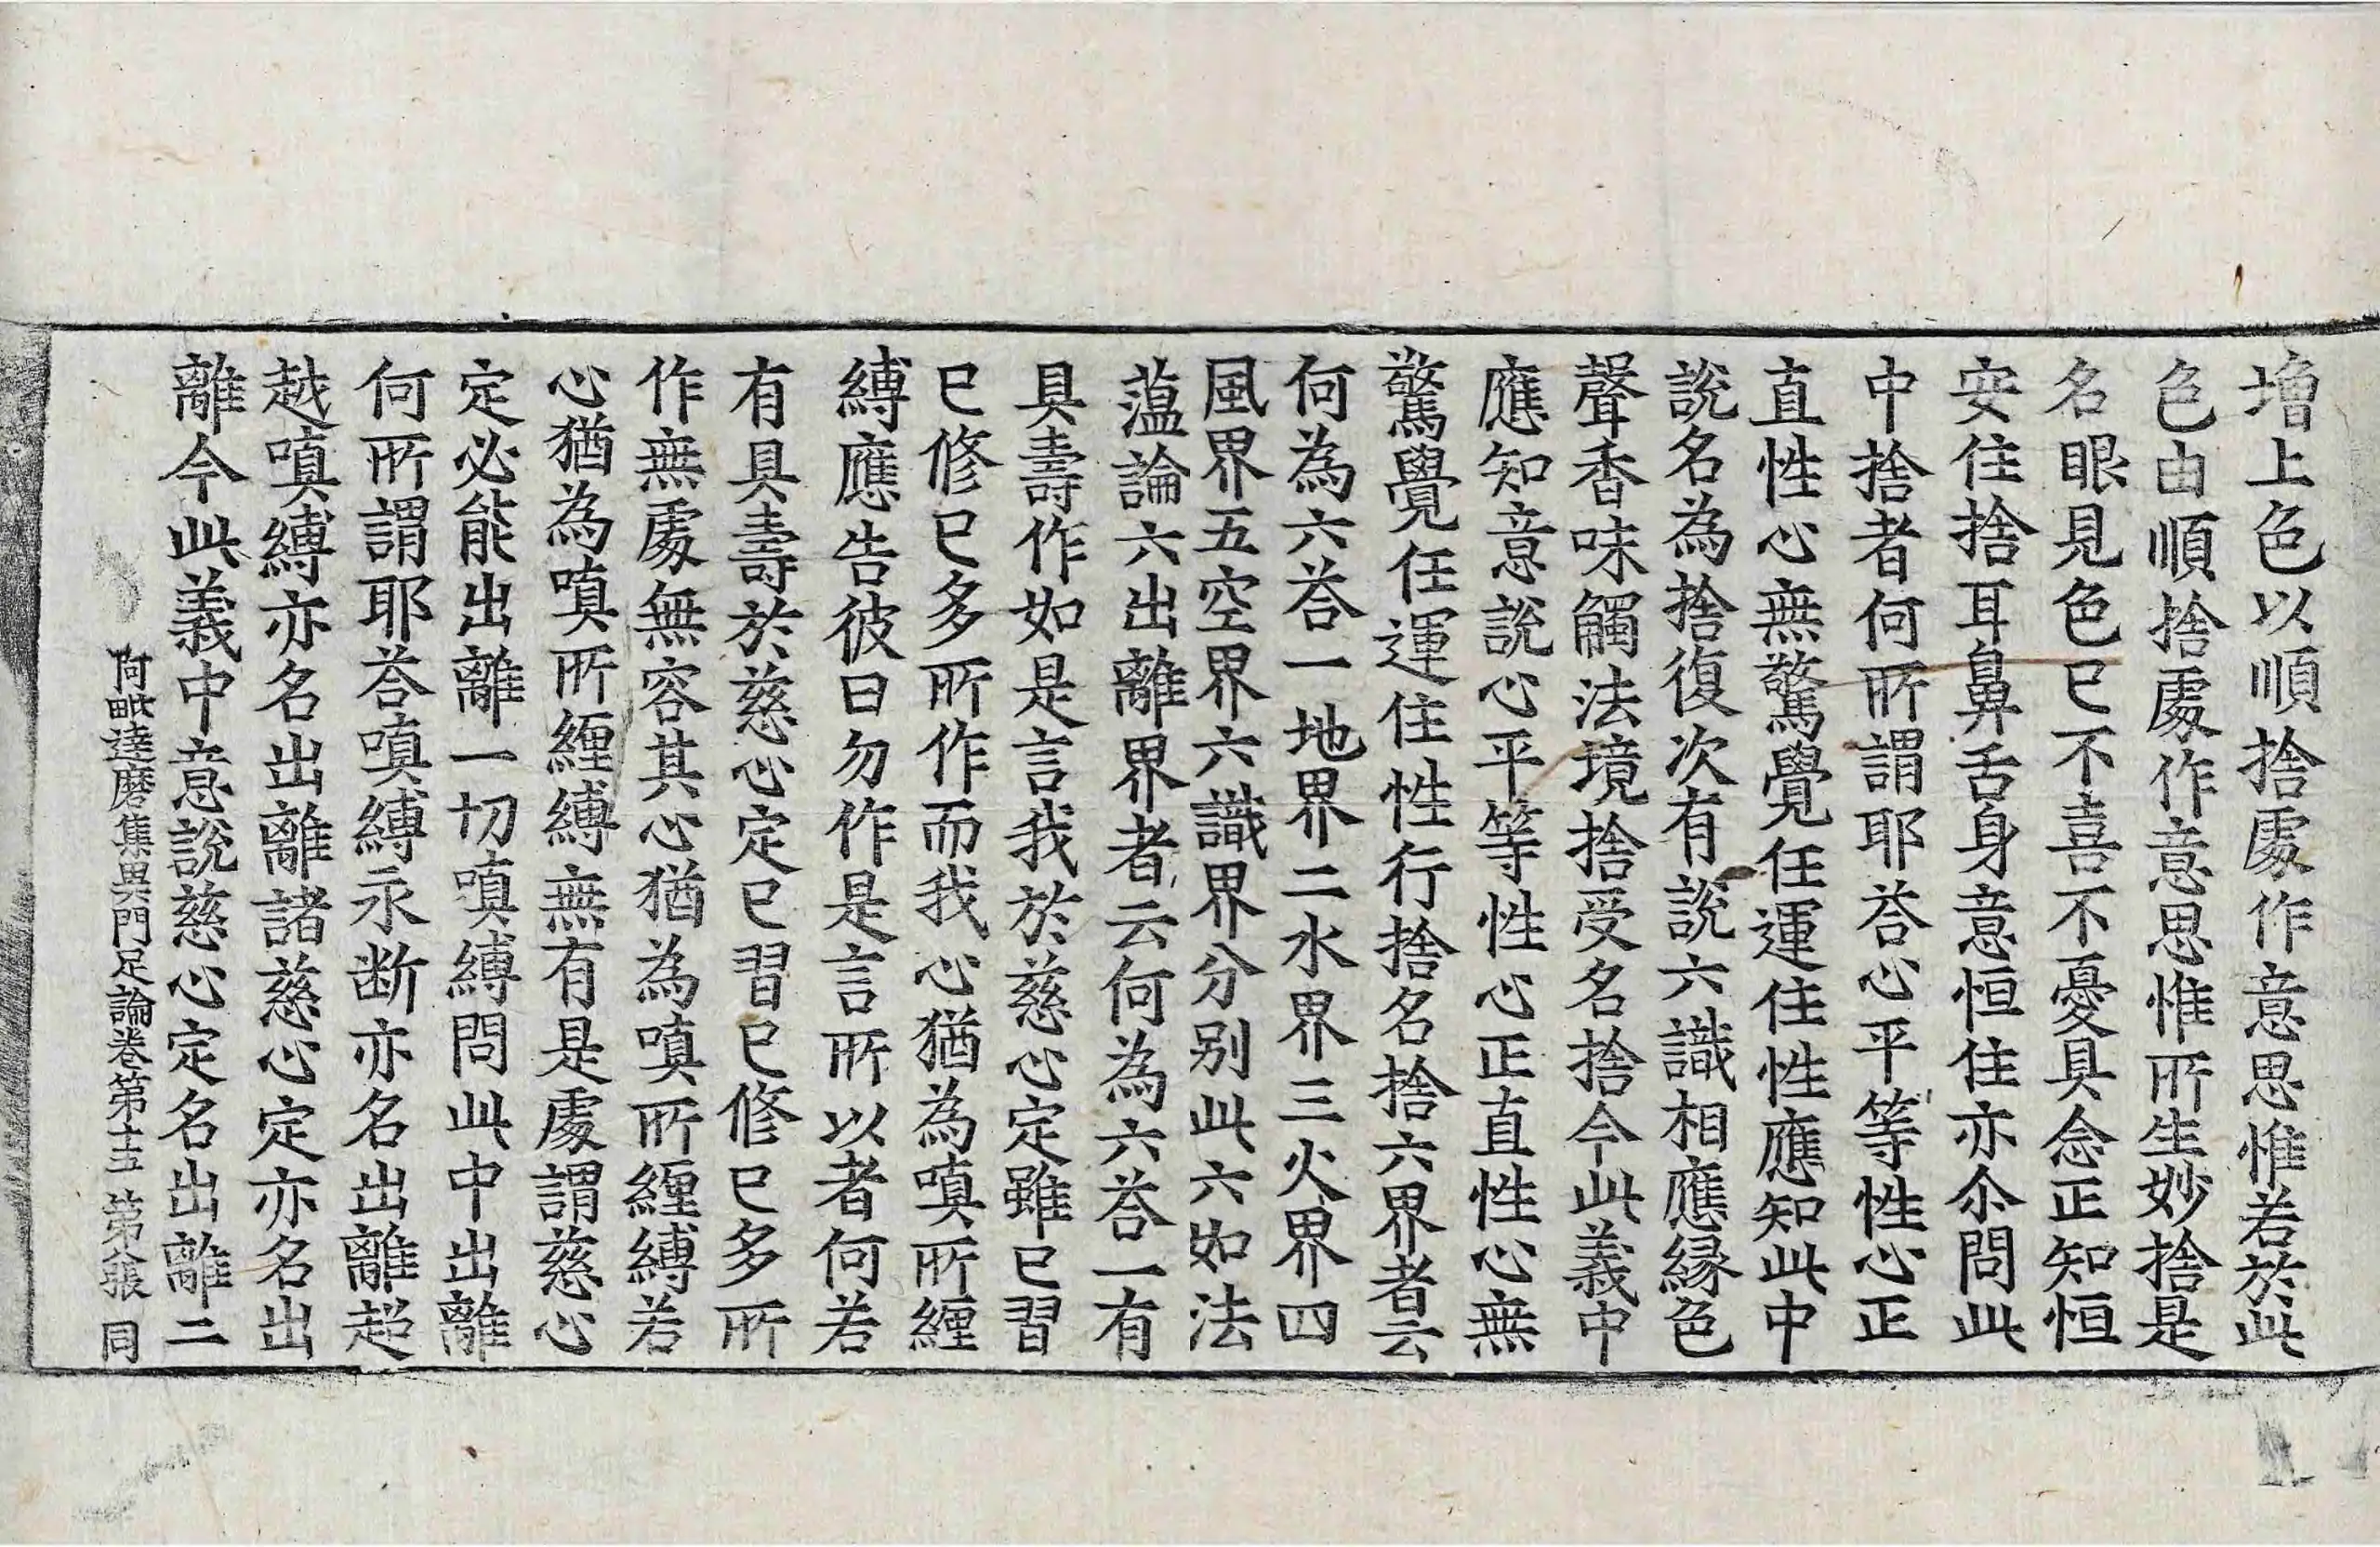 増上色以順捨處作意思惟若於此
色由順捨處作意思惟所生妙捨是
名眼見色已不喜不憂具念正知恒
安住捨耳鼻舌身意恒住亦尒問此
中捨者何所謂耶荅心平等性心正
直性心無驚覺任運住性應知此中
說名為捨復次有說六識相應縁色
聲香味觸法境捨受名捨今此義中
應知意說心平等性心正直性心無
驚覺任運住性行捨名捨六界者云
何為六荅一地界二水界三火界四
風界五空界六識界分别此六如法
薀論六出離界者云何為六荅一有
具壽作如是言我於慈心定雖已習
已修已多所作而我心猶為嗔所纒
縛應告彼曰勿作是言所以者何若
有具壽於慈心定已習已修已多所
作無處無容其心猶為嗔所纒縛若
心猶為嗔所纒縛無有是處謂慈心
定必能出離一切嗔縛問此中出離
何所謂耶荅嗔縛永断亦名出離超
越嗔縛亦名出離諸慈心定亦名出
離今此義中意說慈心定名出離二
阿毗達磨集異門足論卷第十五 第八張 同